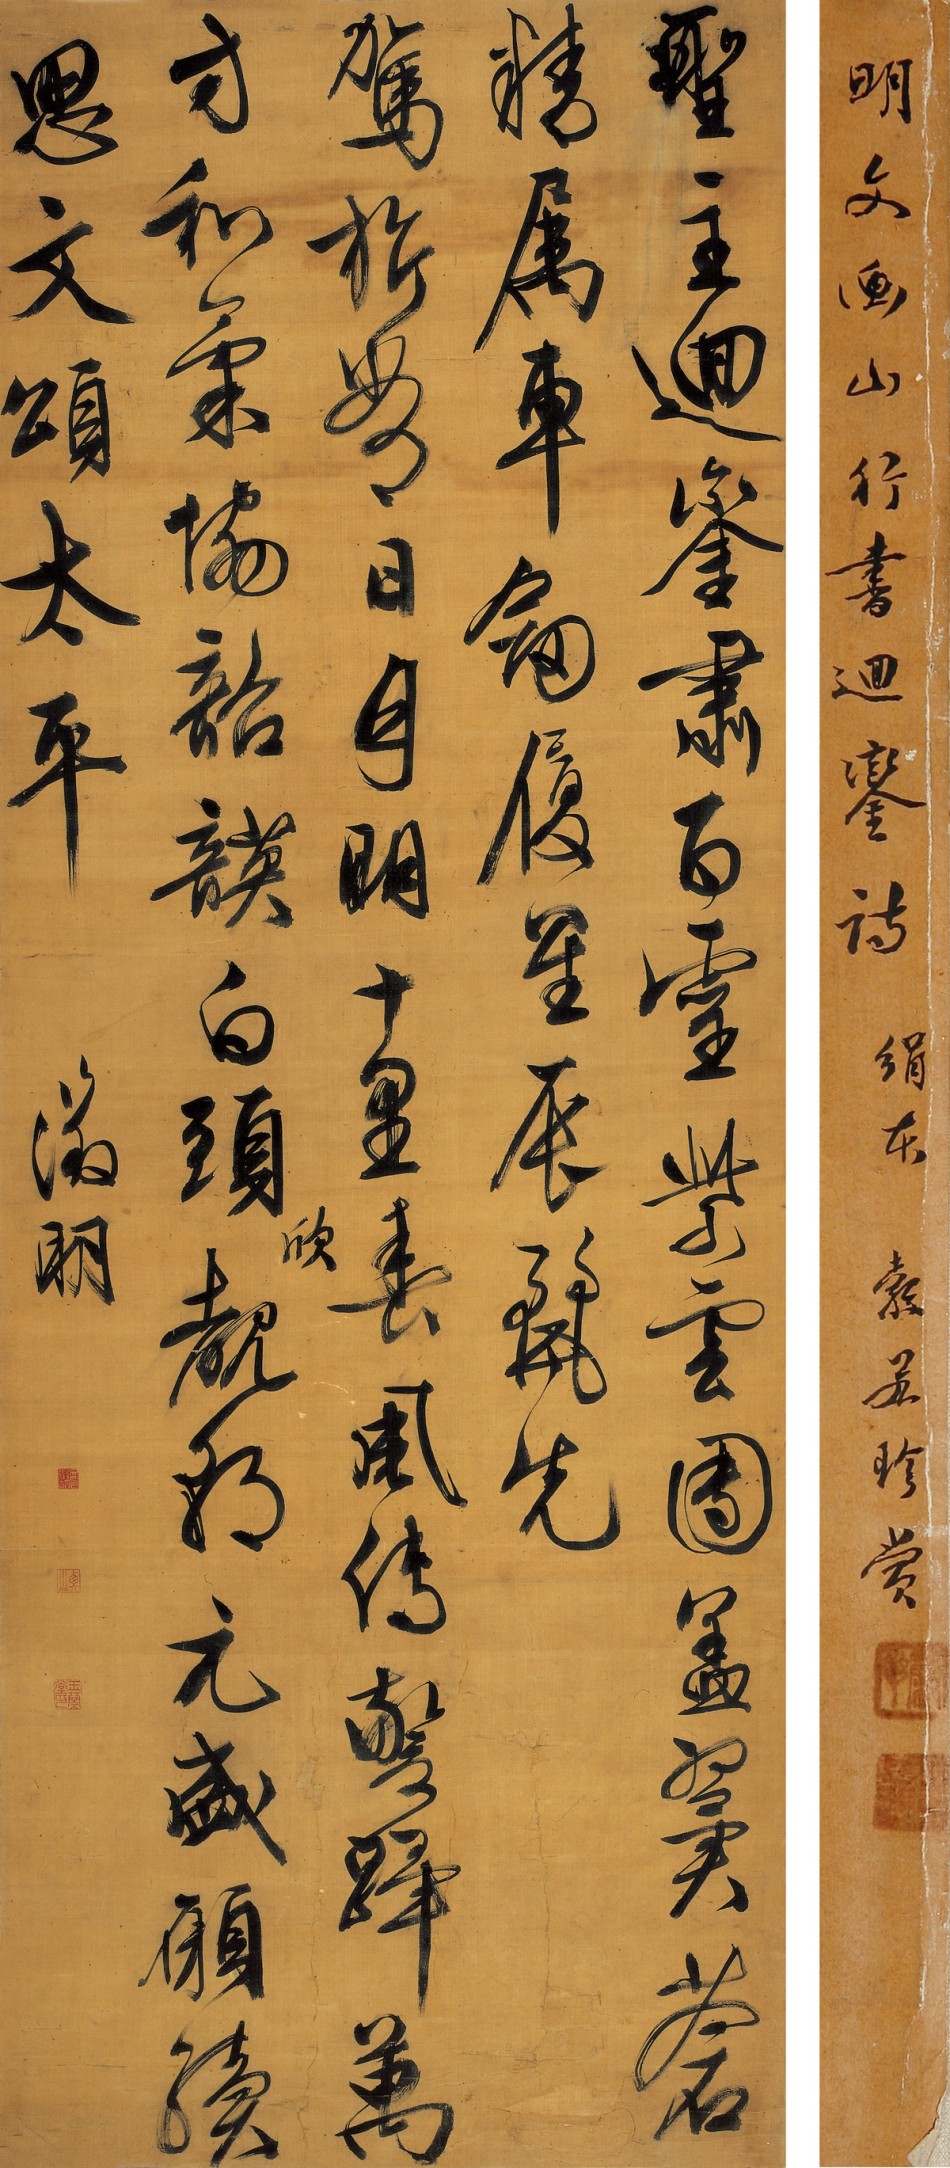 明文衡山行書迴鑾詩 絹本 珍賞
聖主迴鑾肅百靈紫雲團蓋翼蒼
精属車劍履星辰麗先
駕旂常日月明十里春風傳警蹕萬
方和氣協韶韺白頭欣覩朝元盛願續
思文頌太平
徵明